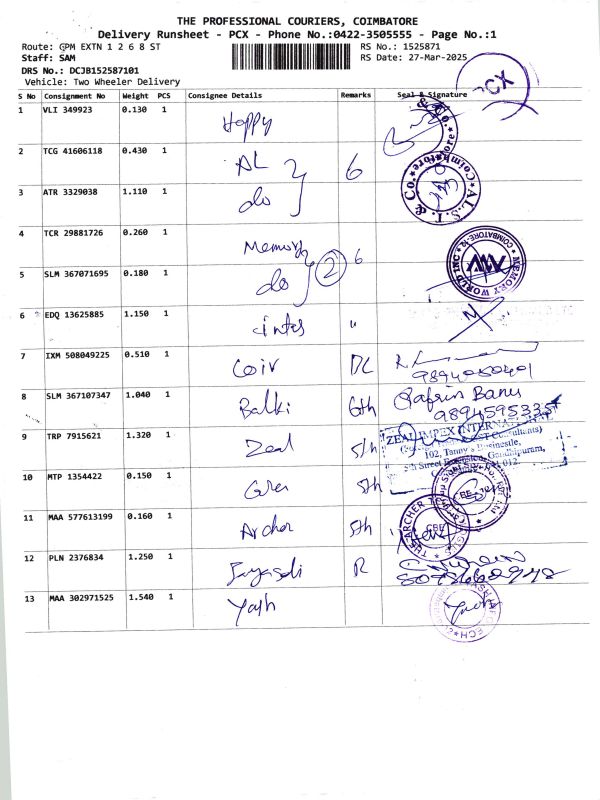 THE PROFESSIONAL COURIERS, COIMBATORE
Delivery Runsheet - PCX - Phone No.:0422-3505555 - Page No.:1
Route: GPM EXTN 1 2 6 8 ST RS No.: 1525871
Staff: SAM RS Date: 27-Mar-2025
DRS No.: DCJB152587101
Vehicle: Two Wheeler Delivery
CX
S No Consignment No Weight PCS Consignee Details Remarks Seal & Signature
1 VLI 349923 0.130 1 Happy
2 TCG 41606118 0.430 1 AL 6
3 ATR 3329038 1.110 1 do
4 TCR 29881726 0.260 1 Memory 2 6
5 SLM 367071695 0.180 1 do MEMORY WORLD INC COIMBATORE-12
6 EDQ 13625885 1.150 1 "
7 IXM 508049225 0.510 1 Coir DL
8 SLM 367107347 1.040 1 Balki 6th Banu
9 TRP 7915621 1.320 1 Zeal 5th ZEAL IMPEX INTERNATIONAL
102, Tanny's Businestle,
10 MTP 1354422 0.150 1 5th
11 MAA 577613199 0.160 1 Archer 5th THE ARCHER
12 PLN 2376834 1.250 1 R
13 MAA 302971525 1.540 1 Yash